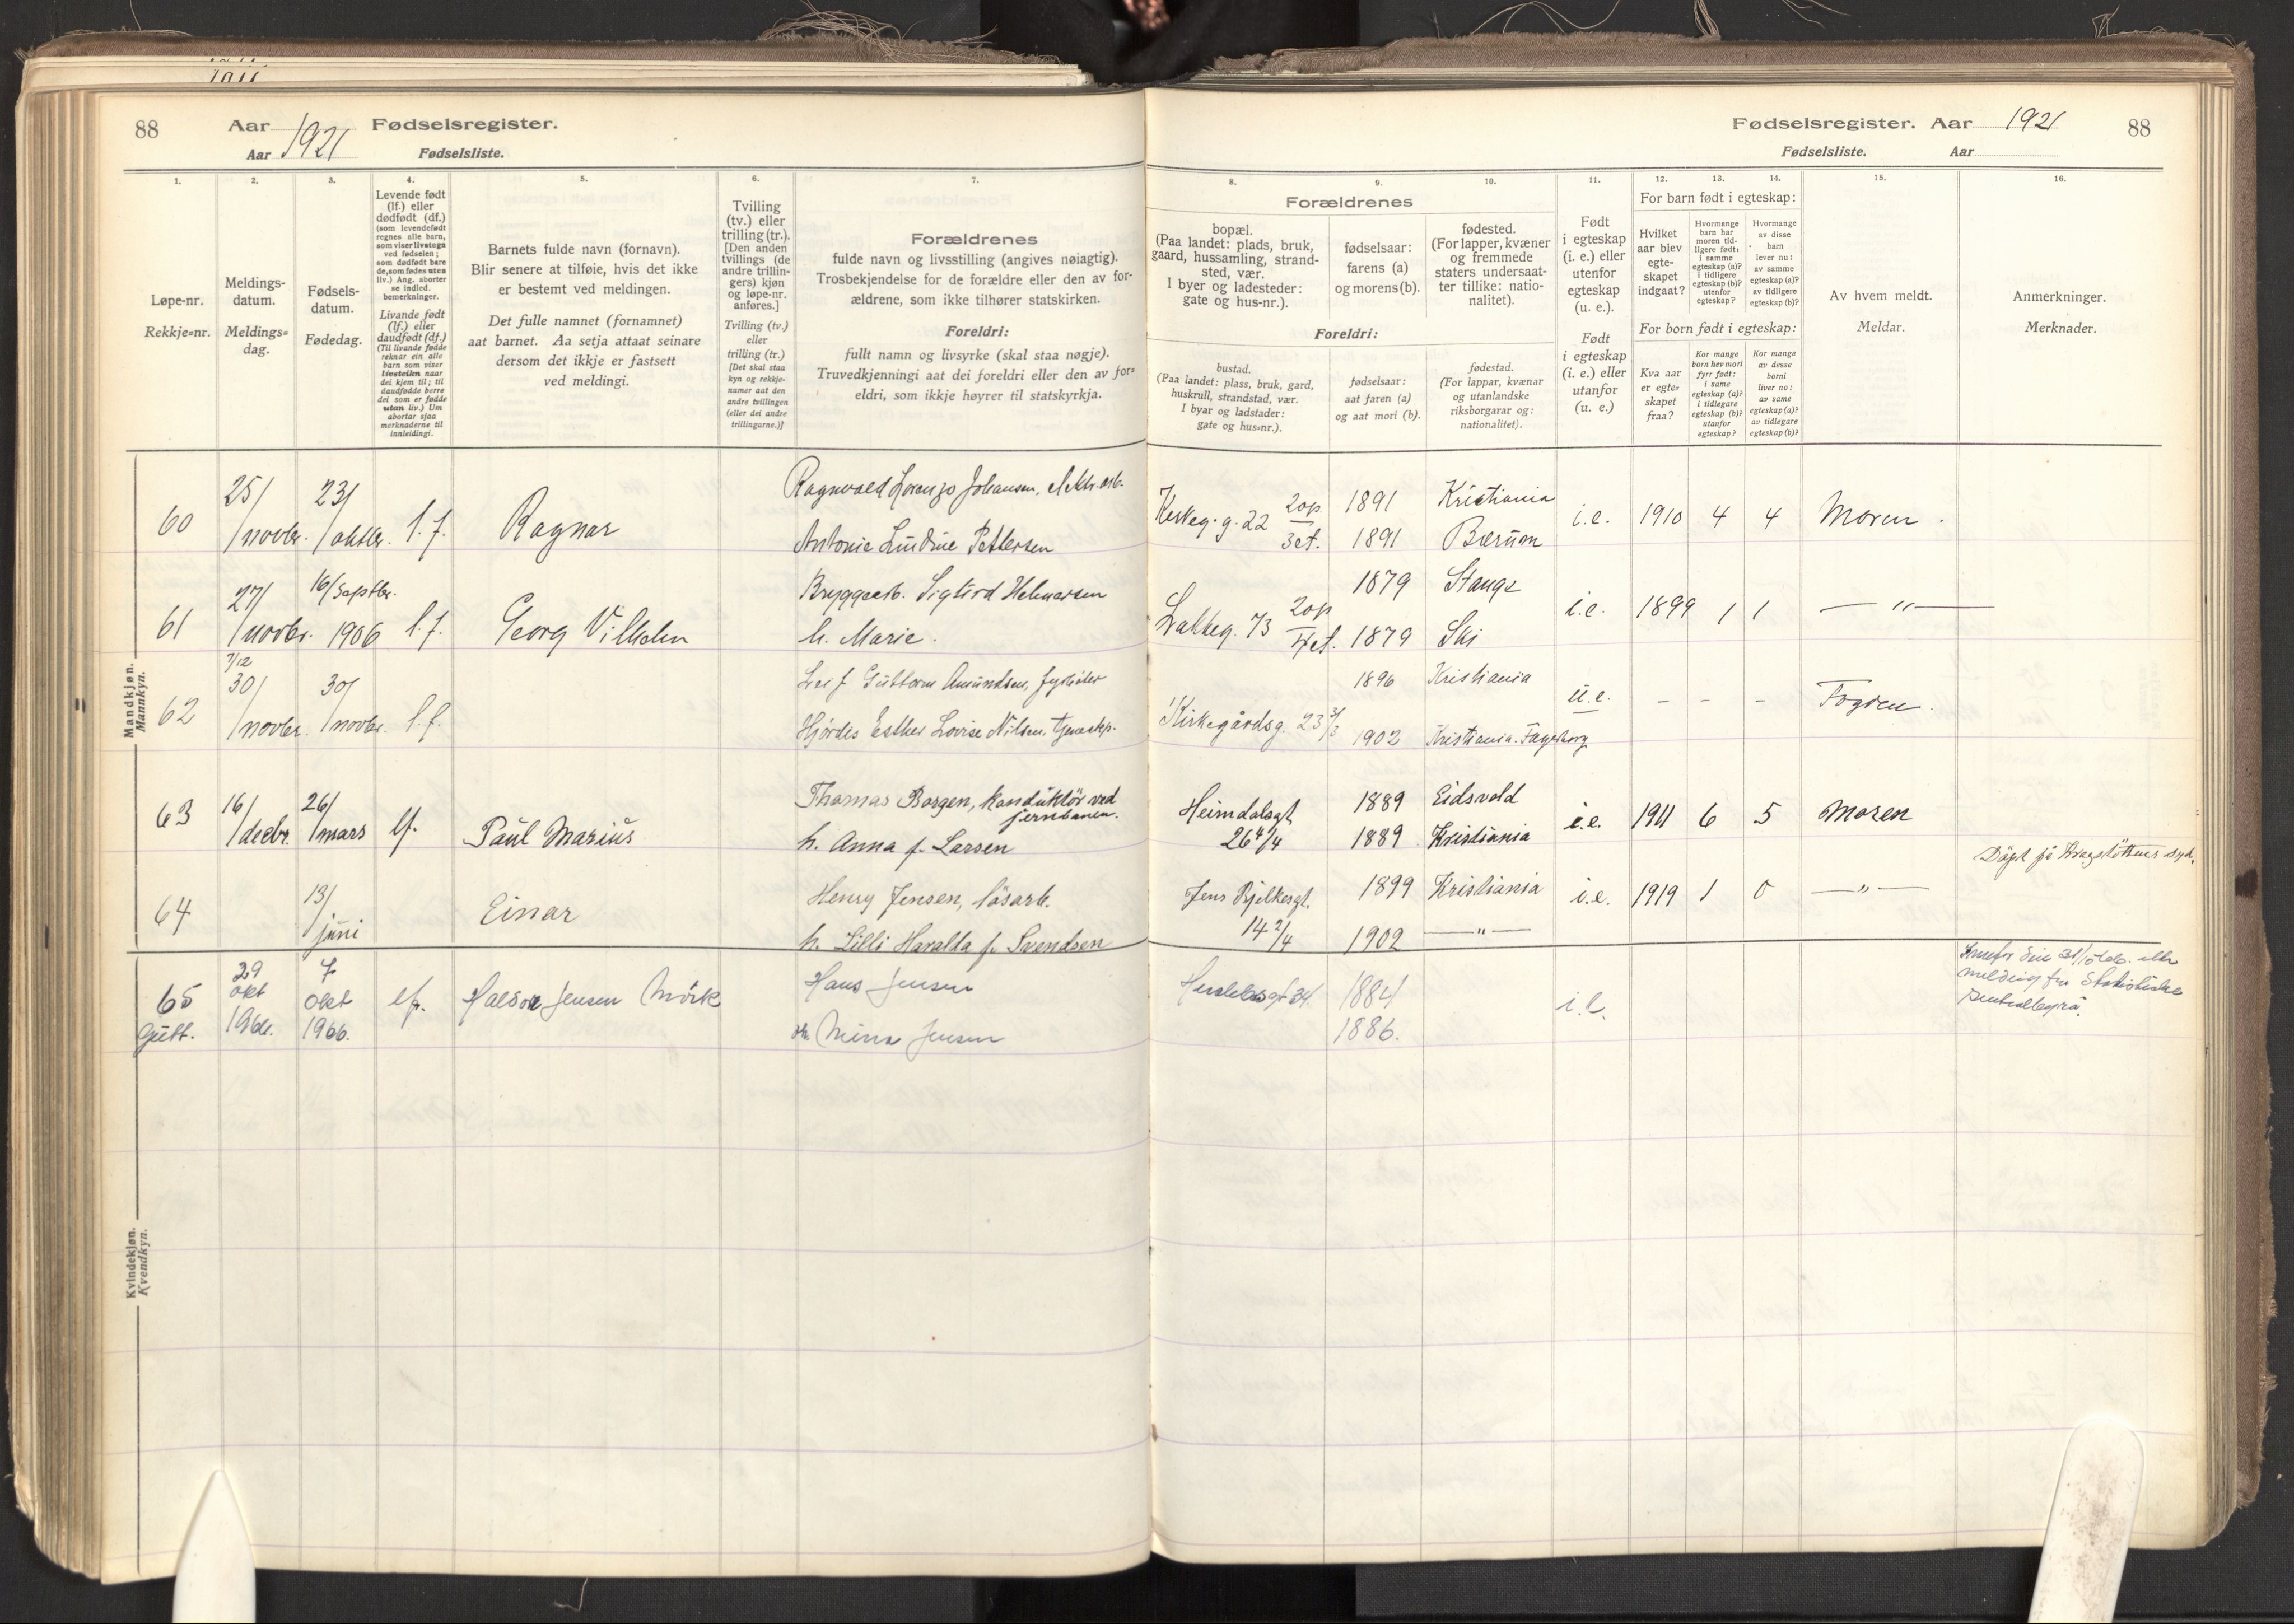 88 Aar 1921 Fødselsregister.
Aar Fødselsliste.
Fødselsregister. Aar 1921 88
Fødselsliste. Aar
1. 2. 3. 4. 5. 6. 7.
Løpe-nr.
Rekkje=nr.
Meldings-
datum.
Meldings=
dag.
Fødsels-
datum.
Fødedag.
Levende født
(lf.) eller
dødfødt (df.)
(som levendefødt
regnes alle barn,
som viser livstegn
ved fødselen;
som dødfødt bare
de, som fødes uten
liv.) Ang. aborter
se indled.
bemerkninger.
Livande født
(lf.) eller
daudfødt (df.)
(Til livande fødde
reknar ein alle
barn som viser
livsteikn naar
dei kjem til; til
daudfødde berre
dei som er fødde
utan liv.) Um
abortar sjaa
merknaderne til
innleidingi.
Barnets fulde navn (fornavn).
Blir senere at tilføie, hvis det ikke
er bestemt ved meldingen.
Det fulle namnet (fornamnet)
aat barnet. Aa setja attaat seinare
dersom det ikkje er fastsett
ved meldingi.
Tvilling
(tv.) eller
trilling (tr.).
[Den anden
tvillings (de
andre trillin-
gers) kjøn
og løpe-nr.
anføres.]
Tvilling (tv.)
eller
trilling (tr.)
[Det skal staa
kyn og rekkje-
numer aat den
andre tvillingen
(eller dei andre
trillingarne.)]
Forældrenes
fulde navn og livsstilling (angives nøiagtig).
Trosbekjendelse for de forældre eller den av for-
ældrene, som ikke tilhører statskirken.
Foreldri:
fullt namn og livsyrke (skal staa nøgje).
Truvedkjenningi aat dei foreldri eller den av for=
eldri, som ikkje høyrer til statskyrkja.
8. 9. 10. 11. 12. 13. 14. 15. 16.
Forældrenes
bopæl.
(Paa landet: plads, bruk,
gaard, hussamling, strand-
sted, vær.
I byer og ladesteder:
gate og hus-nr.).
fødselsaar:
farens (a)
og morens (b).
fødested.
(For lapper, kvæner
og fremmede
staters undersaat-
ter tillike: natio-
nalitet).
Foreldri:
bustad.
(Paa landet: plass, bruk, gard,
huskrull, strandstad, vær.
I byar og ladstader:
gate og hus=nr.).
fødselsaar:
aat faren (a)
og aat mori (b).
fødestad.
(For lappar, kvænar
og utanlandske
riksborgarar og:
nationalitet).
Født
i egteskap
(i. e.) eller
utenfor
egteskap
(u. e.).
Født
i egteskap
(i. e.) eller
utanfor
(u. e.)
For barn født i egteskap:
Hvilket
aar blev
egte-
skapet
indgaat?
Hvormange
barn har
moren tid-
ligere født:
i samme
egteskap (a)?
i tidligere
egteskap (b)?
utenfor
egteskap?
Hvormange
av disse
barn
lever nu:
av samme
egteskap (a)?
av tidligere
egteskap (b)?
For born født i egteskap:
Kva aar
er egte=
skapet
fraa?
Kor mange
born hev mori
fyrr født:
i same
egteskap (a)?
i tidlegare
egteskap (b)?
utanfor
egteskap?
Kor mange
av desse
borni
liver no:
av same
egteskap (a)?
av tidlegare
egteskap (b)?
Av hvem meldt.
Meldar.
Anmerkninger.
Merknader.
Mandkjøn.
Mannkyn.
60 25/novbr. 23/oktbr. l.f. Ragnar
Ragnvald Lorenzo Johansen,
Antonie Ludine Pettersen
Kirkeg. g. 22 2op 3et. 1891 Kristiania i.e. 1910 4 4 Moren.
1891 Bærum
61 27/novbr. 16/septbr. 1906 l.f. Georg Vilhelm
Bryggearb. Sigurd Helmersen
h. Marie.
Lakkeg. 73 2op 4et. 1879 Stange i.e. 1899 1 1 — " —
1879 Ski
62 7/12 30/novbr. 30/novbr. l.f.
Leif Guttorm Amundsen, fyrbøter
Hjørdis Esther Lovise Nilsen, tjenestep.
Kirkegårdsg. 23 3/3 1896 Kristiania u.e. - - - Fogden.
1902 Kristiania. Fagerborg
63 16/decbr. 26/mars lf. Paul Marius
Thomas Borgen, konduktör ved
jernbanen.
h. Anna f. Larsen
Heimdalsgt 26 4/4 1889 Eidsvold i.e. 1911 6 5 Moren
1889 Kristiania
64 13/juni Einar
Henry Jensen, lösarb.
h. Lilli Haralda f. Svendsen
Jens Bjelkesgt. 14 2/4 1899 Kristiania i.e. 1919 1 0 — " —
1902 — " —
65 Gutt. 29 okt 196 7 okt 1906. lf. Jensen Mörk
Hans Jensen
Mina Jensen
34 1884 i.e.
1886.
Kvindekjøn.
Kvendkyn.